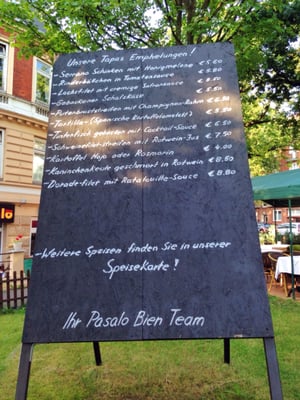 Unsere Tapas Empfehlungen!
-Serrano Schinken mit Honigmelone €5.60
-Rinderbällchen in Tomatensauce €5.00
-Lachsfilet mit cremige Safransauce €8.50
-Gebackener Schafskäse €5.50
-Putenbruststreifen mit Champignon-Rahm €5.50
-Tortilla-(Spanische Kartoffelomelett) €5.50
-Tintenfisch gebacken mit Cocktail-Sauce €5.50
-Schweinefilet-streifen mit Rotwein-Jus €7.50
-Kartoffel Mojo oder Rosmarin €4.00
-Kaninchenkeule geschmort in Rotwein €8.50
-Dorade-filet mit Ratatouille-Sauce €8.80
-Weitere Speisen finden Sie in unserer
Speisekarte!
Ihr Pasalo Bien Team